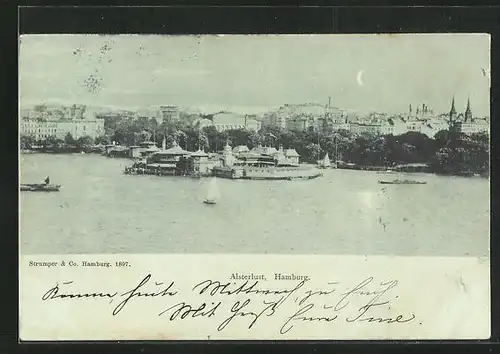 Strumper & Co. Hamburg. 1897.
Alsterlust, Hamburg.
Komme heute Mittwoch zu Euch.
Mit Gruß Eure Tine.